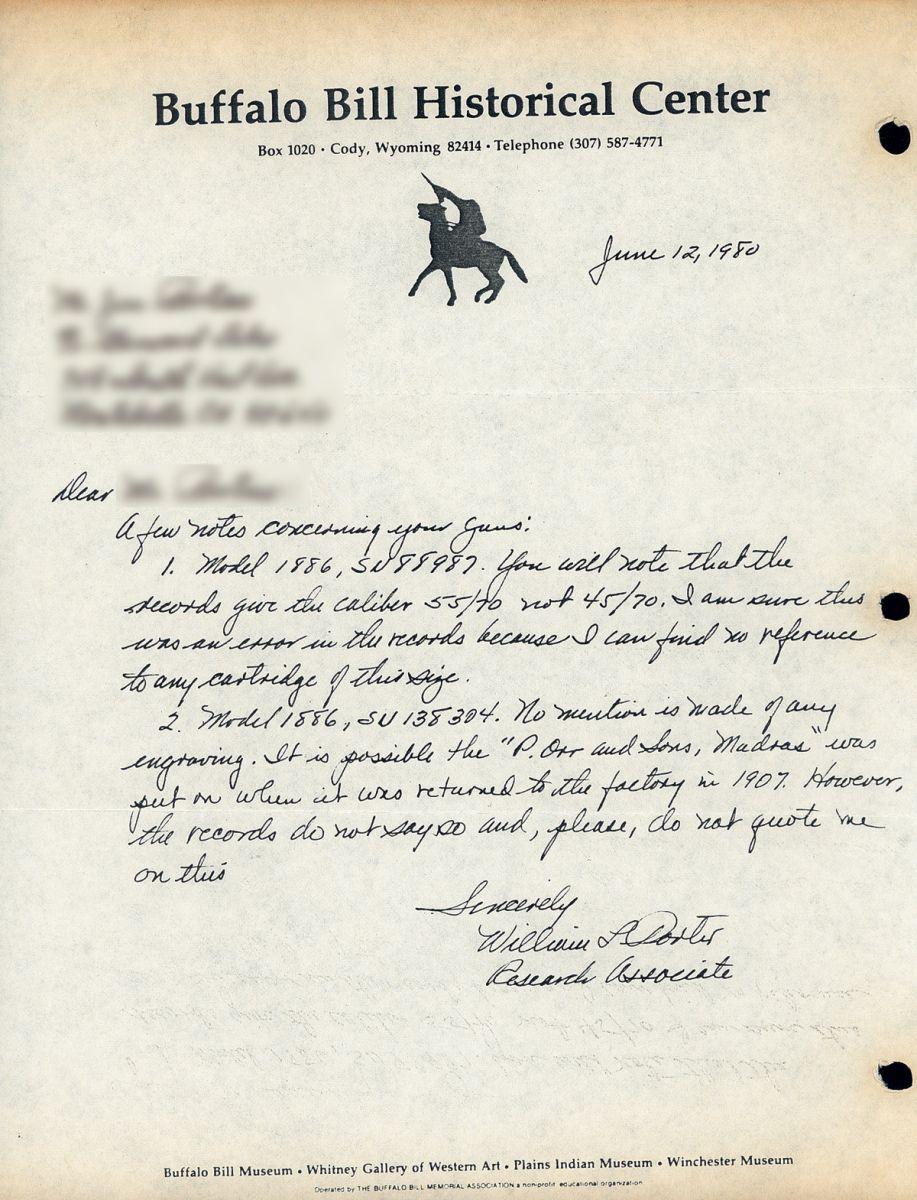 Buffalo Bill Historical Center
Box 1020 • Cody, Wyoming 82414 • Telephone (307) 587-4771
June 12, 1980
Dear
A few notes concerning your guns:
1. Model 1886, SN 88987. You will note that the
records give the caliber 55/70 not 45/70. I am sure this
was an error in the records because I can find no reference
to any cartridge of this size.
2. Model 1886, SN 138304. No mention is made of any
engraving. It is possible the "P. Orr and Sons, Madras" was
put on when it was returned to the factory in 1907. However,
the records do not say so and, please, do not quote me
on this
Sincerely
William Porter
Research Associate
Buffalo Bill Museum • Whitney Gallery of Western Art • Plains Indian Museum • Winchester Museum
Operated by THE BUFFALO BILL MEMORIAL ASSOCIATION a non-profit educational organization